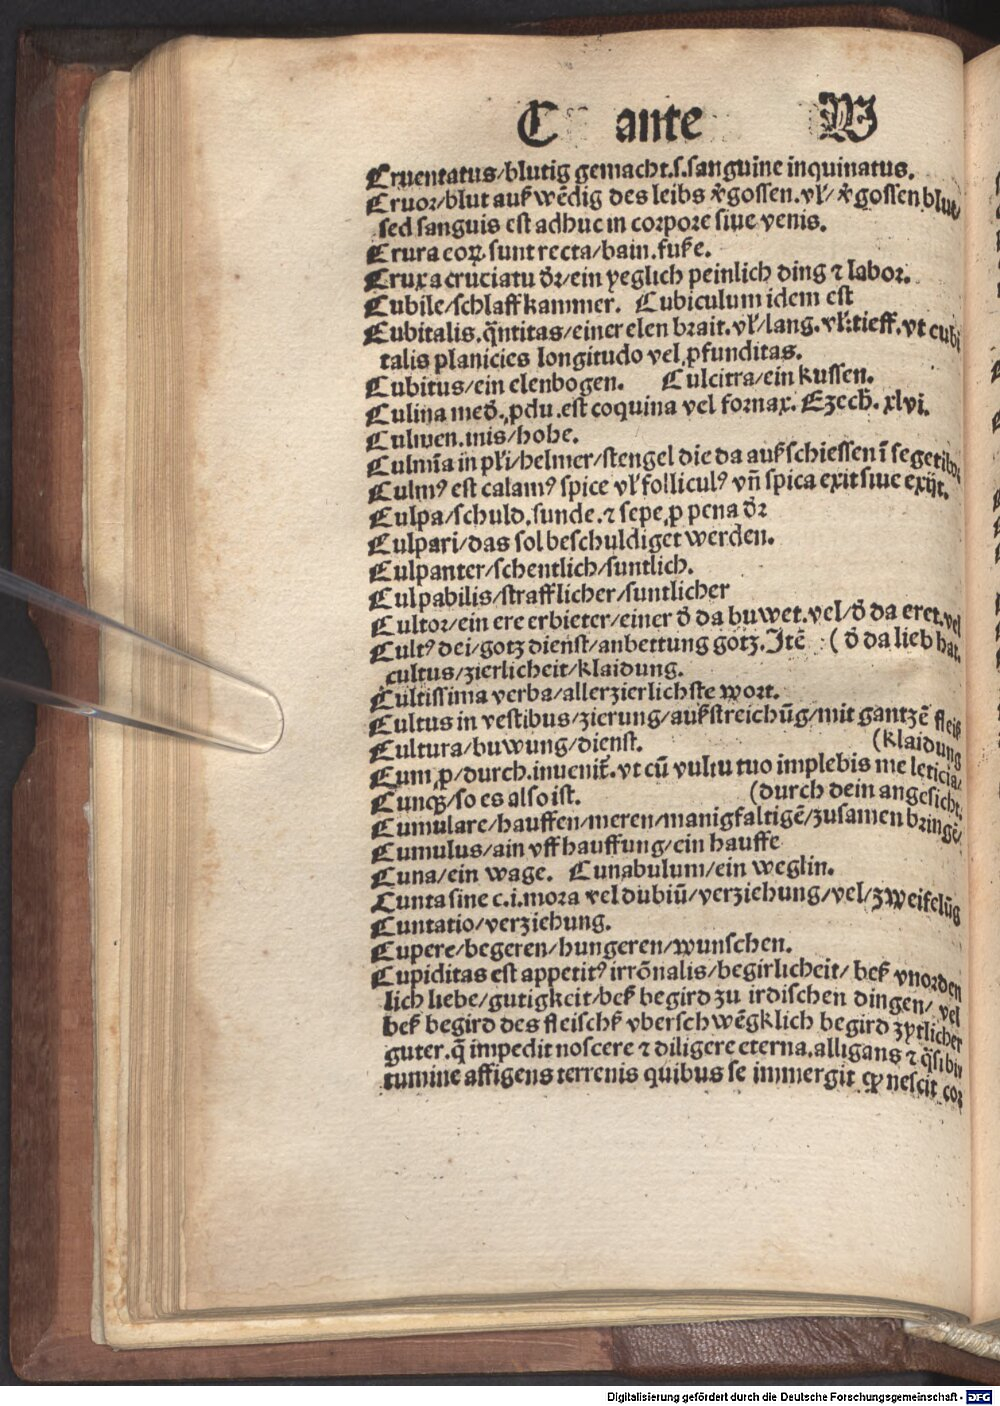 C ante W
Cruentatus/blutig gemacht.s.sanguine inquinatus.
Cruor/blut auß wēdig des leibs v̓gossen.vl̓/v̓gossen blut/
sed sanguis est adhuc in corpore siue venis.
Crura coꝝ.sunt recta/bain.fuße.
Crux a cruciatu dr̄/ein yeglich peinlich ding ⁊ labor.
Cubile/schlaff kammer. Cubiculum idem est
Cubitalis.q̄ntitas/einer elen brait.vl̓/lang.vl̓:tieff.vt cubi
talis planicies longitudo vel ꝓfunditas.
Cubitus/ein elenbogen. Culcitra/ein kussen.
Culina med̓.ꝓdu.est coquina vel fornax. Ezech̓. xlvi.
Culmen.mis/hohe.
Culmīa in pl̓i/helmer/stengel die da auß schiessen ī segetibꝰ
Culmꝰ est calamꝰ spice vl̓ folliculꝰ vn̄ spica exit siue exijt.
Culpa/schuld.sunde.⁊ sepe ꝓ pena dr̄
Culpari/das sol beschuldiget werden.
Culpanter/schentlich/suntlich.
Culpabilis/strafflicher/suntlicher
Cultor/ein ere erbieter/einer d̓ da buwet.vel/d̓ da eret.vel
Cultꝰ dei/gotz dienst/anbettung gotz.Itē (d̓ da lieb hat.
cultus/zierlicheit/klaidung.
Cultissima verba/allerzierlichste wort.
Cultus in vestibus/zierung/außstreichūg/mit gantzē fleiß
Cultura/buwung/dienst. (klaidung
Cum ꝓ/durch.inuenit̄.vt cū vultu tuo implebis me leticia/
Cunqꝫ/so es also ist. (durch dein angesicht.
Cumulare/hauffen/meren/manigfaltigē/zusamen bringē/
Cumulus/ain vff hauffung/ein hauffe
Cuna/ein wage. Cunabulum/ein weglin.
Cunta sine c.i.mora vel dubiū/verziehung/vel/zweifelūg
Cuntatio/verziehung.
Cupere/begeren/hungeren/wunschen.
Cupiditas est appetitꝰ irrōnalis/begirlicheit/ beß vnorden
lich liebe/gutigkeit/beß begird zu irdischen dingen/ vel
beß begird des fleischß vberschwēgklich begird zytlicher
guter.q̄ impedit noscere ⁊ diligere eterna.alligans ⁊ q̄sibin
tumine affigens terrenis quibus se immergit qꝫ nescit cor
Digitalisierung gefördert durch die Deutsche Forschungsgemeinschaft - DFG